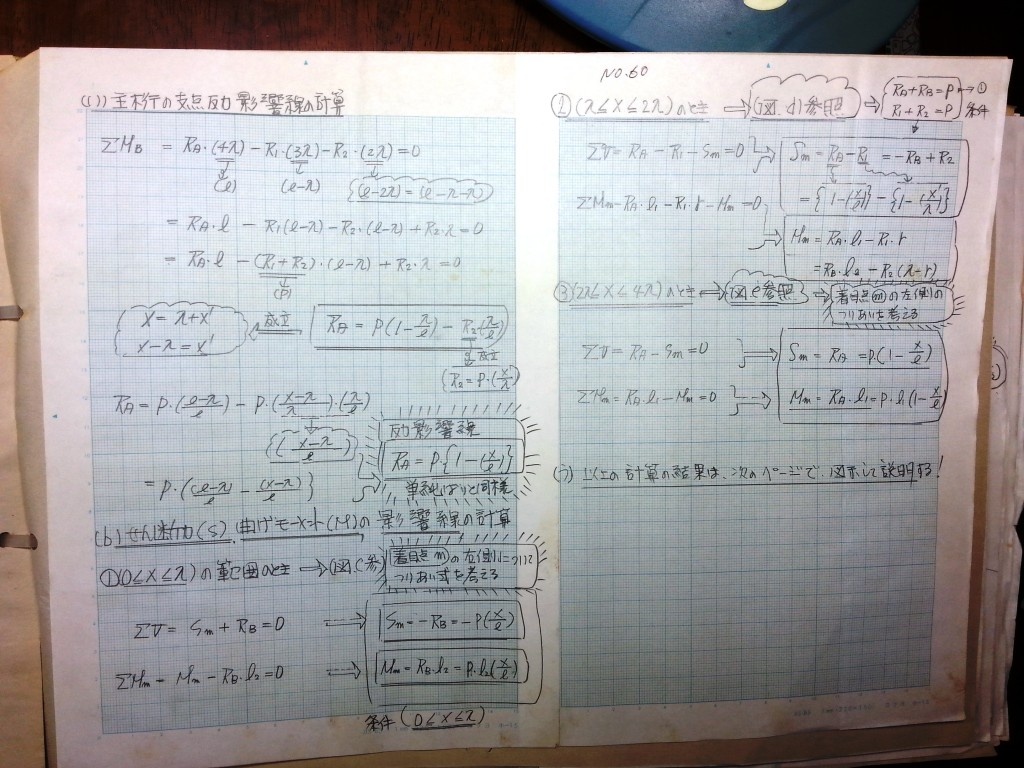 NO.60
(c)) 主桁の支点反力影響線の計算
ΣM_B = R_A・(4λ) − R_1・(3λ) − R_2・(2λ) = 0
(l) (l−λ) {(l−2λ) = (l−λ−λ)}
= R_A・l − R_1(l−λ) − R_2・(l−λ) + R_2・λ = 0
= R_A・l − (R_1+R_2)・(l−λ) + R_2・λ = 0
(P)
x = λ+x'
x−λ = x'
成立
R_A = P(1−λ/l) − R_2(λ/l)
成立
(R_2 = P・(x'/λ)
R_A = P・(l−λ/l) − P・(x−λ/λ)・(λ/l)
{( x−λ/l )}
= P・{(l−λ)/l − (x−λ)/l}
反力影響線
R_A = P{1−(x/l)}
単純ばりと同様
(b) せん断力(S)、曲げモーメント(M)の影響線の計算
①(0≤x≤λ)の範囲のとき ⇒ (図.c参)
着目点ⓜの左側について
つりあい式を考える
ΣV = S_m + R_B = 0 ⇒ S_m = −R_B = −P(x/l)
ΣM_m = M_m − R_B・l_2 = 0 ⇒ M_m = R_B・l_2 = P・l_2(x/l)
条件 (0≤x≤λ)
②(λ≤x≤2λ)のとき ⇒ (図.d)参照 ⇒
R_A+R_B = P → ①
R_1+R_2 = P 条件
ΣV = R_A − R_1 − S_m = 0
S_m = R_A − R_1 = −R_B + R_2
= {1−(x/l)} − {1−(x'/λ)}
ΣM_m = R_A・l_1 − R_1・r − M_m = 0
M_m = R_A・l_1 − R_1・r
= R_B・l_2 − R_2(λ−r)
③(2λ≤x≤4λ)のとき ⇒ (図e参照) ⇒
着目点ⓜの左側の
つりあいを考える
ΣV = R_A − S_m = 0 ⇒ S_m = R_A = P・(1−x/l)
ΣM_m = R_A・l_1 − M_m = 0 ⇒ M_m = R_A・l_1 = P・l_1(1−x/l)
(う) 以上の計算の結果は、次のページで、図示して説明する!